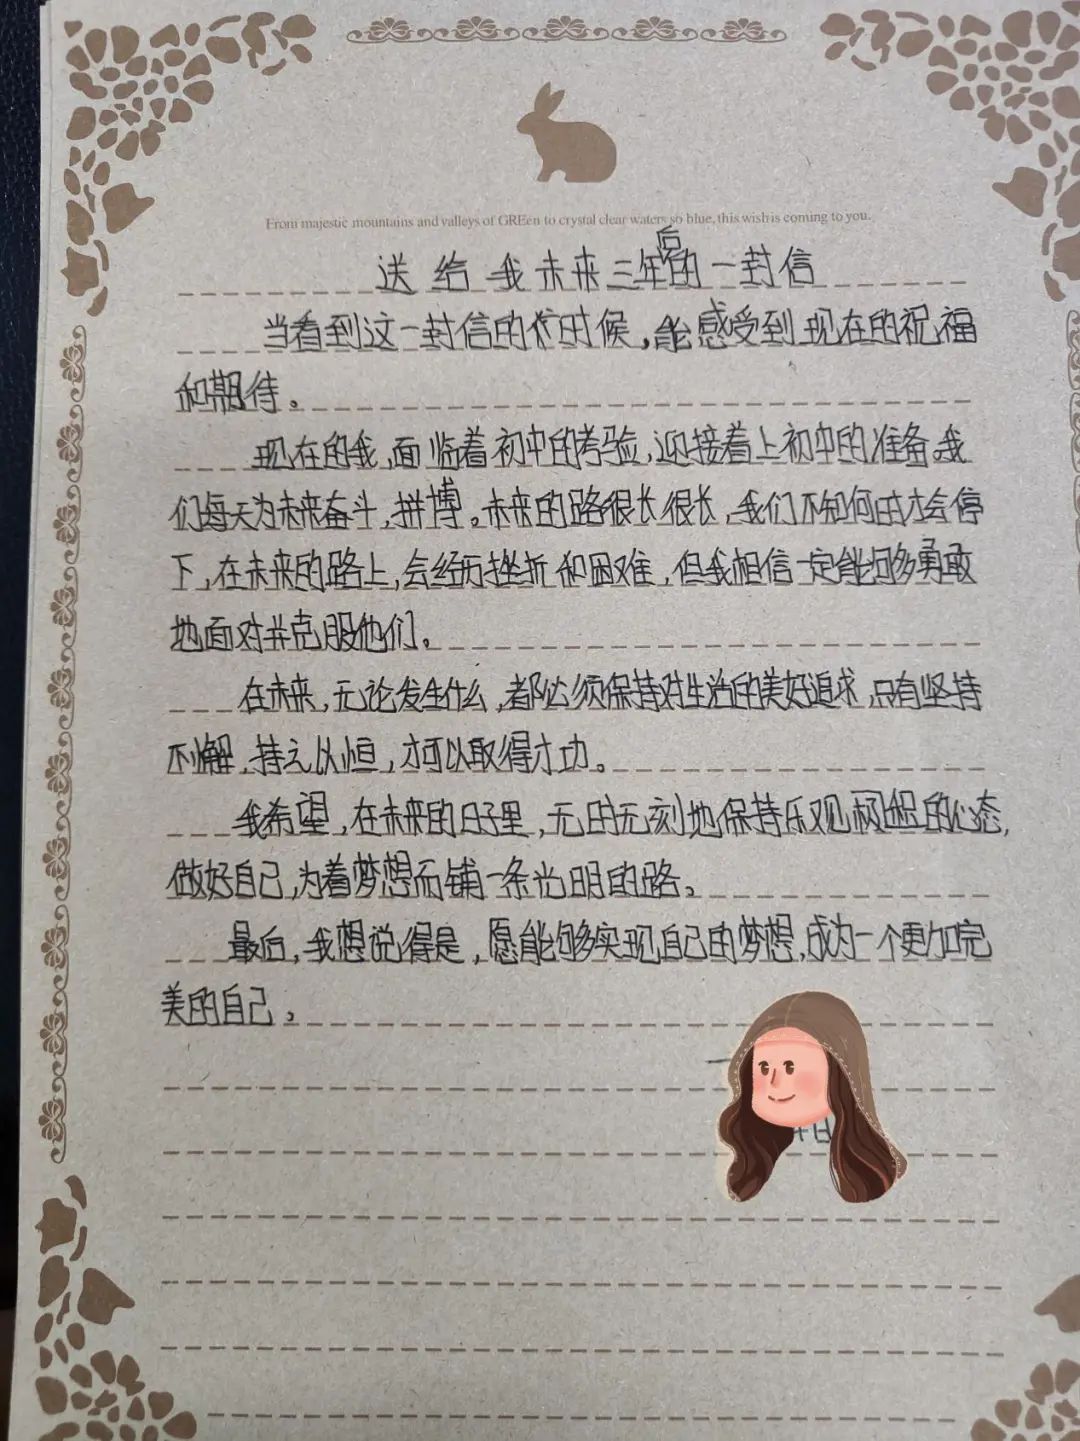 From majestic mountains and valleys of GREen to crystal clear waters so blue, this wish is coming to you.
送给我未来三年后的一封信
当看到这一封信的时候,能感受到现在的祝福
和期待。
现在的我,面临着初中的考验,迎接着上初中的准备。我
们每天为未来奋斗,拼博。未来的路很长很长,我们不知何时才会停
下,在未来的路上,会经历挫折和困难,但我相信一定能够勇敢
地面对并克服他们。
在未来,无论发生什么,都必须保持对生活的美好追求,只有坚持
不懈,持之以恒,才可以取得才功。
我希望,在未来的日子里,无时无刻地保持乐观积极的心态,
做好自己,为着梦想而铺一条光明的路。
最后,我想说得是,愿能够实现自己的梦想,成为一个更加完
美的自己。